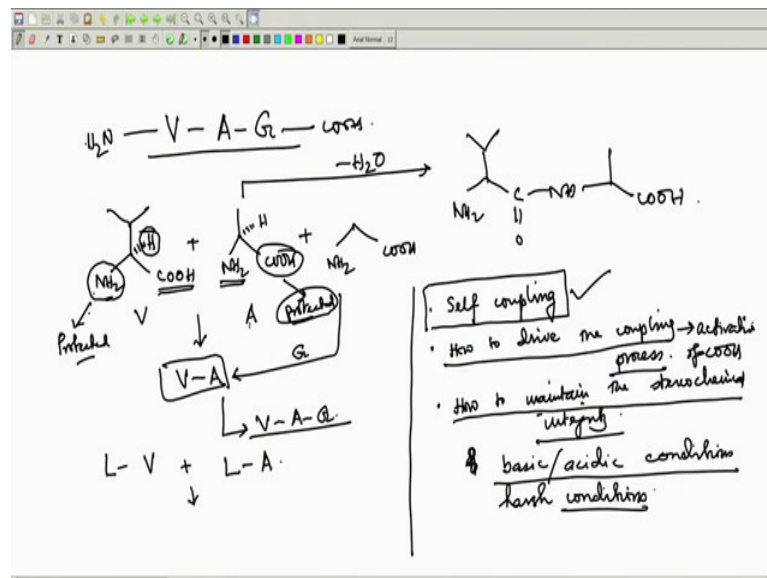 Arial Normal 12
H2N — V — A — G — COOH.
-H2O
NH2 C — NH COOH.
O
H + H +
NH2 COOH NH2 COOH NH2 COOH
Protected V A Protected
G
V — A
V — A — G.
L — V + L — A.
. Self coupling ✓
. How to drive the coupling → activation
process. of COOH
. How to maintain the stereochemical
integrity.
basic/acidic conditions
harsh conditions.